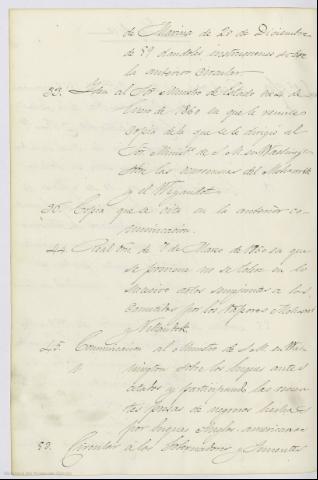 de Marina de 20 de Diciembre
de 59 dandoles instrucciones sobre
la anterior circular
33. Idem al Sor Ministro de Estado en 4 de
Enero de 1860 en que le remite
copia de la que se le dirigio al
Sor Minist.º de S. M. en Washingt
sobre las ocurrencias del Mohawk
y el Wyandot
36. Copia que se cita en la anterior co-
municacion.
44. Real Orn de 7 de Marzo de 1860 en que
se previene no se toleren en lo
sucesivo actos semejantes a los
cometidos por los Vapores Mohawk
y
45. Comunicacion al Ministro de S. M. en Was-
hington sobre los buques antes
citados y participando las recien-
tes presas de negreros hechas
por buques Anglo-americanos
53. Circular a los Gobernadores y Tenentes